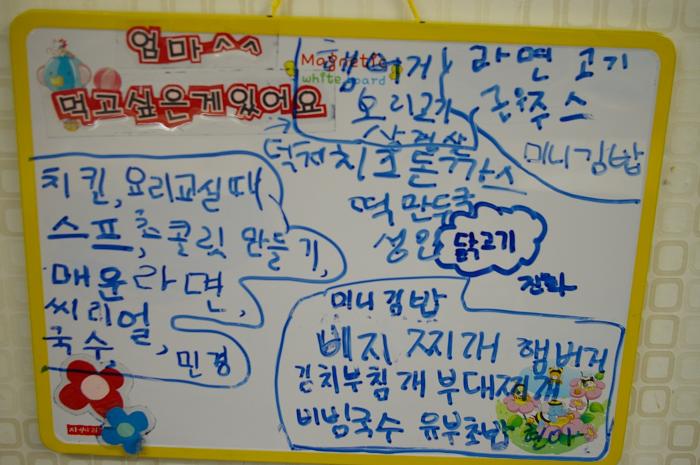 엄마^^
Magnetic
white board
먹고싶은게있어요
라면 고기
오리고기 주스
미니김밥
치즈돈까스
떡만두국
성인
닭고기
치킨, 요리교실때
스프, 초콜릿 만들기,
매운라면,
씨리얼,
국수, 민경
미니김밥
베지찌개 햄버거
김치부침개 부대찌개
비빔국수 유부초밥 현아